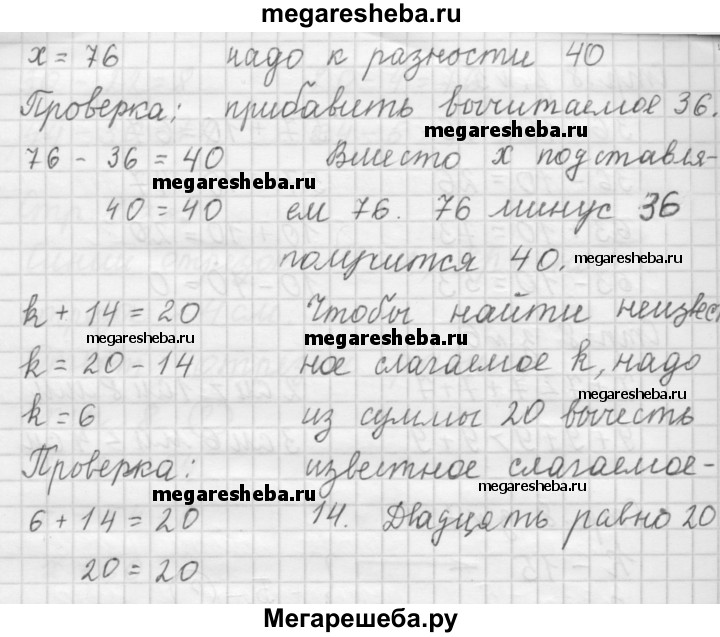 megaresheba.ru
x = 76 надо к разности 40
Проверка: прибавить вычитаемое 36.
megaresheba.ru
76 - 36 = 40 Вместо x подставля-
megaresheba.ru
40 = 40 ем 76. 76 минус 36
получится 40. megaresheba.ru
k + 14 = 20 Чтобы найти неизвест
megaresheba.ru megaresheba.ru
k = 20 - 14 ное слагаемое k, надо
megaresheba.ru
k = 6 из суммы 20 вычесть
Проверка: известное слагаемое-
megaresheba.ru megaresheba.ru
6 + 14 = 20 14. Двадцать равно 20
20 = 20
Мегарешеба.ру